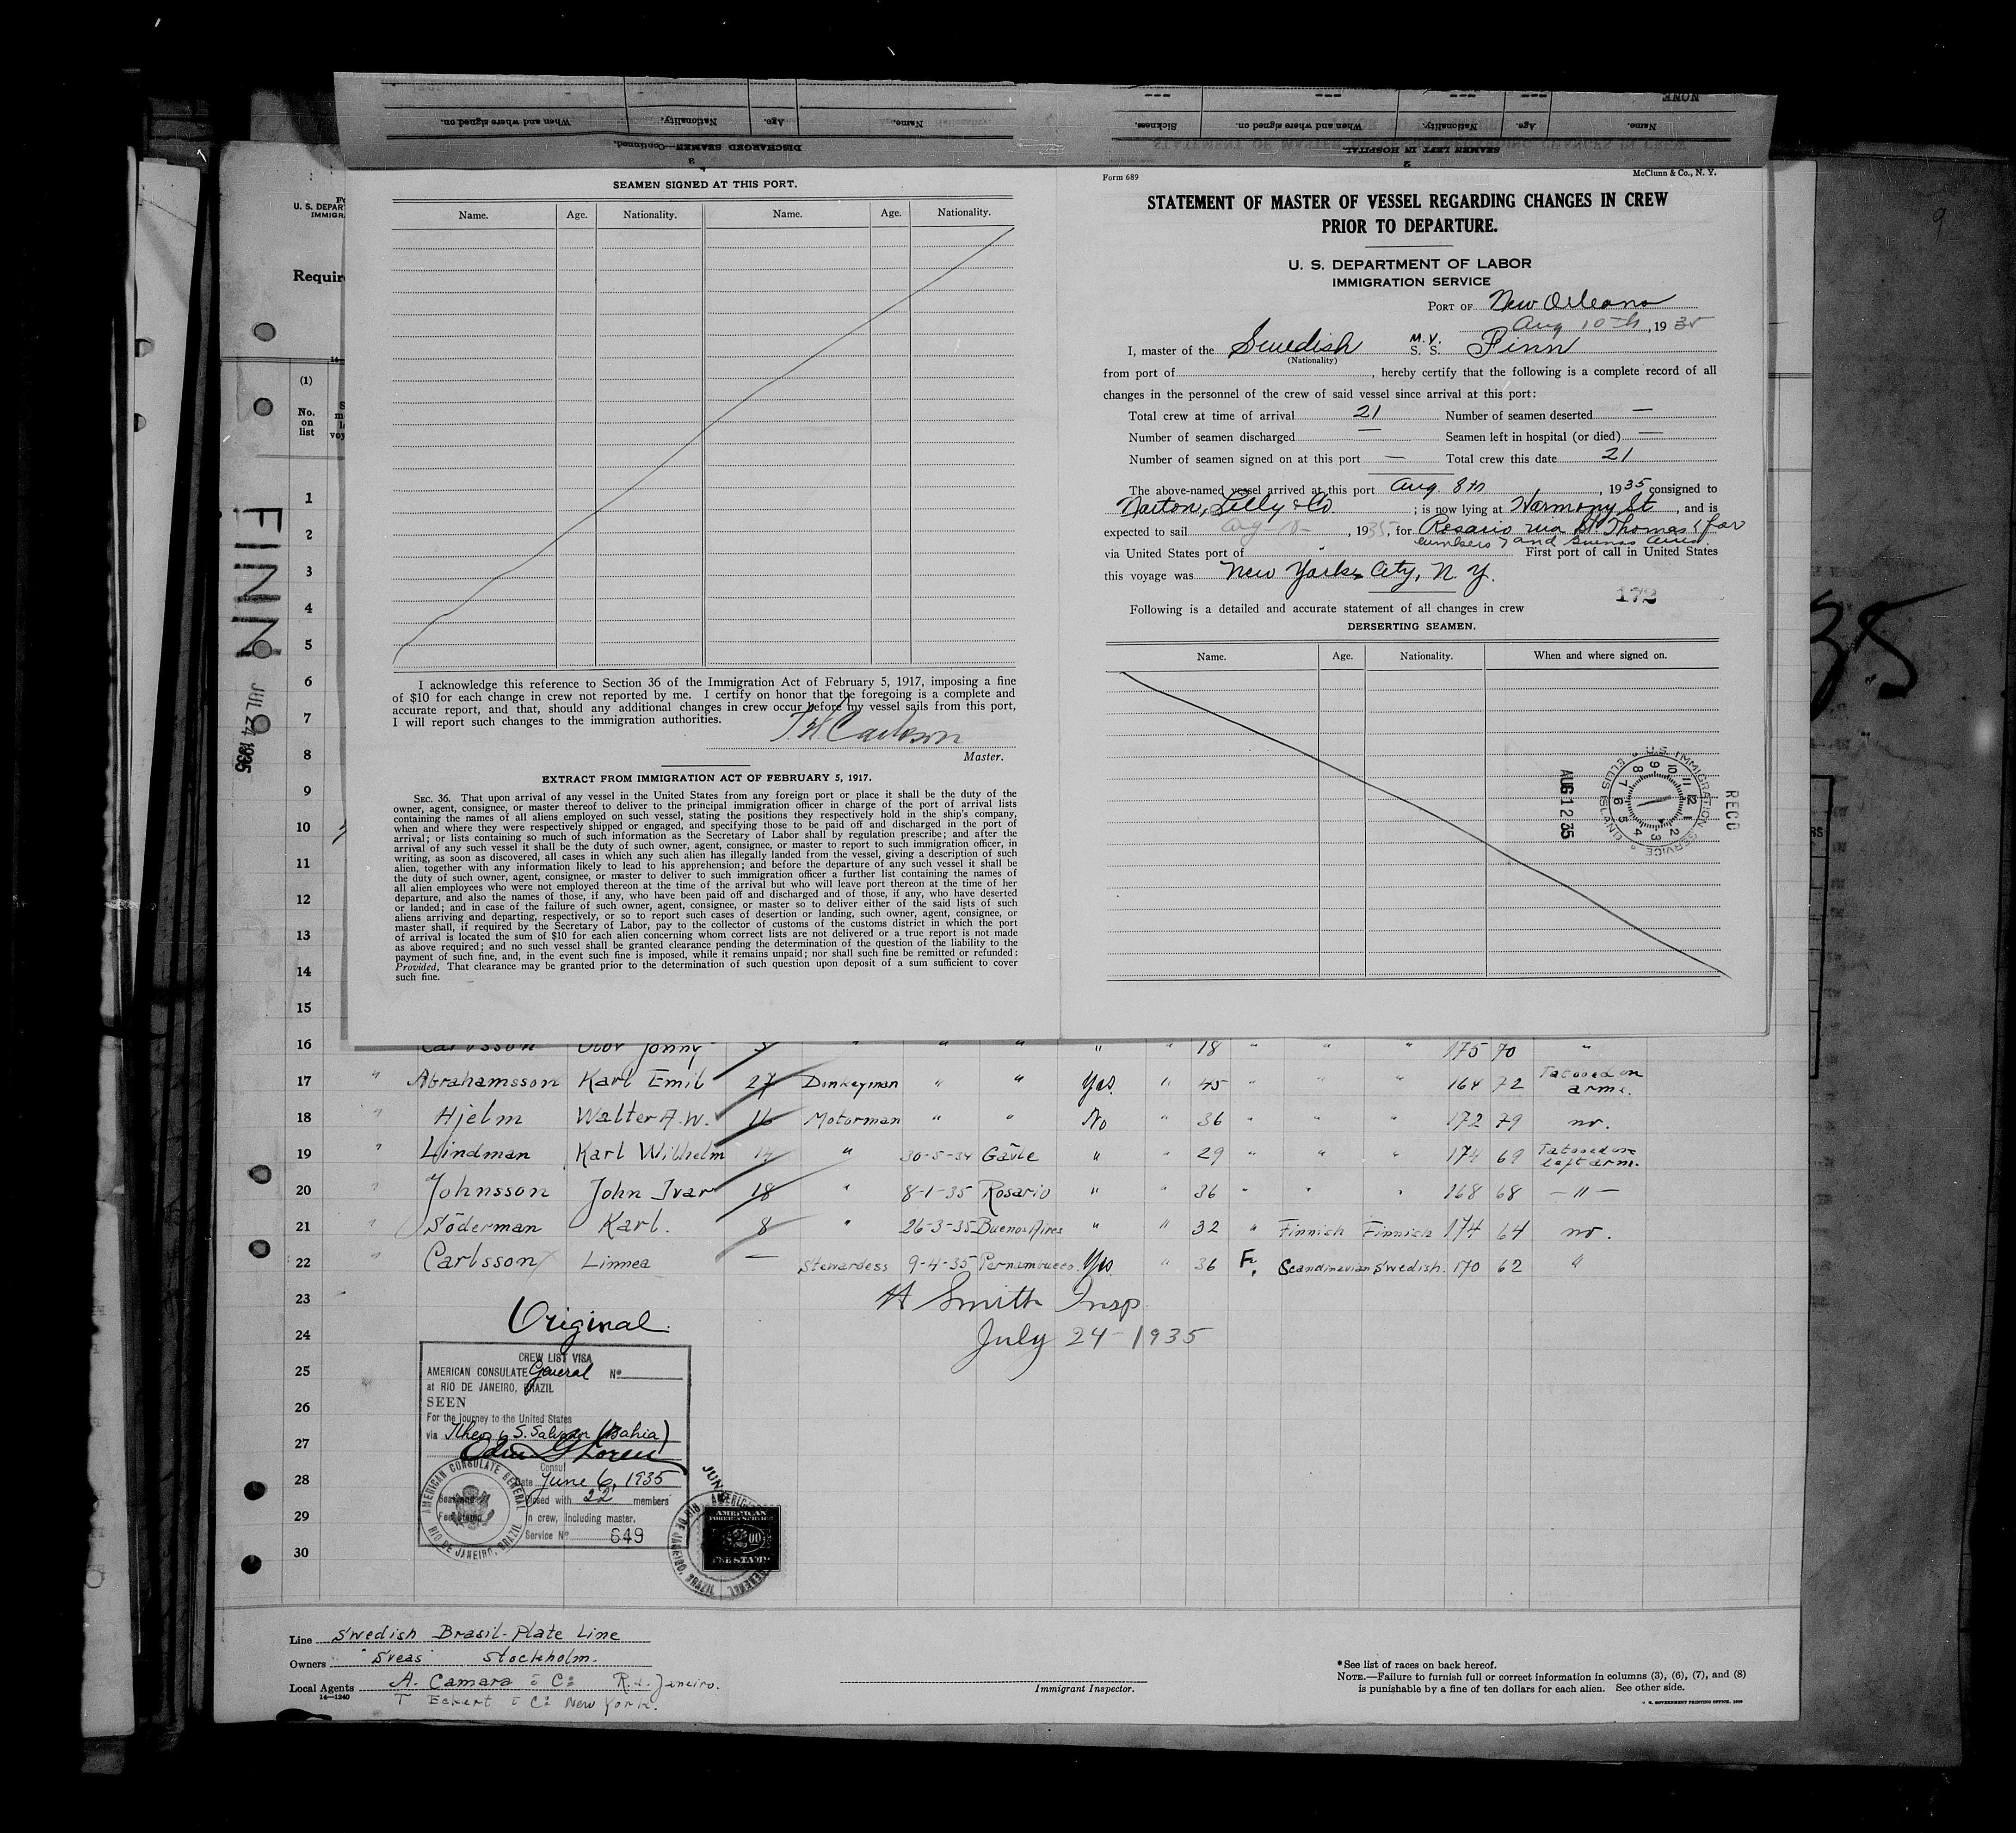 When and where signed on.
Nationality.
Age.
Name.
DISCHARGED SEAMEN—Continued.
3
NONE
Sickness.
When and where signed on.
Nationality.
Age.
Name.
SEAMEN LEFT IN HOSPITAL.
2
U. S. DEPAR
IMMIGRA
Require
(1)
No.
on
list
FINN
JUL 24 1935
SEAMEN SIGNED AT THIS PORT.
Name. Age. Nationality. Name. Age. Nationality.
I acknowledge this reference to Section 36 of the Immigration Act of February 5, 1917, imposing a fine
of $10 for each change in crew not reported by me. I certify on honor that the foregoing is a complete and
accurate report, and that, should any additional changes in crew occur before my vessel sails from this port,
I will report such changes to the immigration authorities.
Master.
EXTRACT FROM IMMIGRATION ACT OF FEBRUARY 5, 1917.
SEC. 36. That upon arrival of any vessel in the United States from any foreign port or place it shall be the duty of the
owner, agent, consignee, or master thereof to deliver to the principal immigration officer in charge of the port of arrival lists
containing the names of all aliens employed on such vessel, stating the positions they respectively hold in the ship's company,
when and where they were respectively shipped or engaged, and specifying those to be paid off and discharged in the port of
arrival; or lists containing so much of such information as the Secretary of Labor shall by regulation prescribe; and after the
arrival of any such vessel it shall be the duty of such owner, agent, consignee, or master to report to such immigration officer, in
writing, as soon as discovered, all cases in which any such alien has illegally landed from the vessel, giving a description of such
alien, together with any information likely to lead to his apprehension; and before the departure of any such vessel it shall be
the duty of such owner, agent, consignee, or master to deliver to such immigration officer a further list containing the names of
all alien employees who were not employed thereon at the time of the arrival but who will leave port thereon at the time of her
departure, and also the names of those, if any, who have been paid off and discharged and of those, if any, who have deserted
or landed; and in case of the failure of such owner, agent, consignee, or master so to deliver either of the said lists of such
aliens arriving and departing, respectively, or so to report such cases of desertion or landing, such owner, agent, consignee, or
master shall, if required by the Secretary of Labor, pay to the collector of customs of the customs district in which the port
of arrival is located the sum of $10 for each alien concerning whom correct lists are not delivered or a true report is not made
as above required; and no such vessel shall be granted clearance pending the determination of the question of the liability to the
payment of such fine, and, in the event such fine is imposed, while it remains unpaid; nor shall such fine be remitted or refunded:
Provided, That clearance may be granted prior to the determination of such question upon deposit of a sum sufficient to cover
such fine.
Form 689 McClunn & Co., N. Y.
STATEMENT OF MASTER OF VESSEL REGARDING CHANGES IN CREW
PRIOR TO DEPARTURE.
U. S. DEPARTMENT OF LABOR
IMMIGRATION SERVICE
PORT OF New Orleans
Aug 10th, 1935
I, master of the Swedish M. V. S. S. Finn
(Nationality)
from port of , hereby certify that the following is a complete record of all
changes in the personnel of the crew of said vessel since arrival at this port:
Total crew at time of arrival 21 Number of seamen deserted —
Number of seamen discharged — Seamen left in hospital (or died) —
Number of seamen signed on at this port — Total crew this date 21
The above-named vessel arrived at this port Aug 8th, 1935 consigned to
Norton, Lilly & Co. ; is now lying at Harmony St, and is
expected to sail Aug-10-, 1935, for Rosario via St Thomas (for
bunkers) and Buenos Aires.
via United States port of " First port of call in United States
this voyage was New York City, N. Y.
172
Following is a detailed and accurate statement of all changes in crew
DERSERTING SEAMEN.
Name. Age. Nationality. When and where signed on.
RECD
U.S. IMMIGRATION SERVICE
ELLIS ISLAND
AUG 12 35
35
9
1
2
3
4
5
6
7
8
9
10
11
12
13
14
15
16 Carlsson Olov Jonny " " " " " 18 " " " 175 70 "
17 " Abrahamsson Karl Emil 27 Donkeyman " " Yes " 45 " " " 164 72 Tatooed on arms.
18 " Hjelm Walter A.W. 16 Motorman " " No 36 " " " 172 79 no.
19 " Lindman Karl Wilhelm 14 " 30-5-34 Gävle " 29 " " " 174 69 Tatooed on left arm.
20 " Johnsson John Ivar 18 " 8-1-35 Rosario " 36 " " " 168 68 — " —
21 " Söderman Karl. 8 " 26-3-35 Buenos Aires " " 32 " Finnish Finnish 174 64 no.
22 " Carlsson Linnea — Stewardess 9-4-35 Pernambuco Yes " 36 F. Scandinavian Swedish. 170 62 "
23
24
25
26
27
28
29
30
H Smith Insp.
July 24-1935
Original
CREW LIST VISA
AMERICAN CONSULATE General No
at RIO DE JANEIRO, BRAZIL
SEEN
For the journey to the United States
via Ilheos & S. Salvador (Bahia)
Consul
Date June 6, 1935
Closed with 22 members
in crew, including master.
Service No 649
AMERICAN CONSULATE GENERAL
RIO DE JANEIRO, BRAZIL
JUN
AMERICAN
FOREIGN SERVICE
FEE STAMP
Line Swedish Brasil-Plate Line
Owners "Svea" Stockholm.
Local Agents A. Camara & Co: R. d. Janeiro.
14—1240 T Eckert & Co: New York.
Immigrant Inspector.
*See list of races on back hereof.
NOTE.—Failure to furnish full or correct information in columns (3), (6), (7), and (8)
is punishable by a fine of ten dollars for each alien. See other side.
U. S. GOVERNMENT PRINTING OFFICE